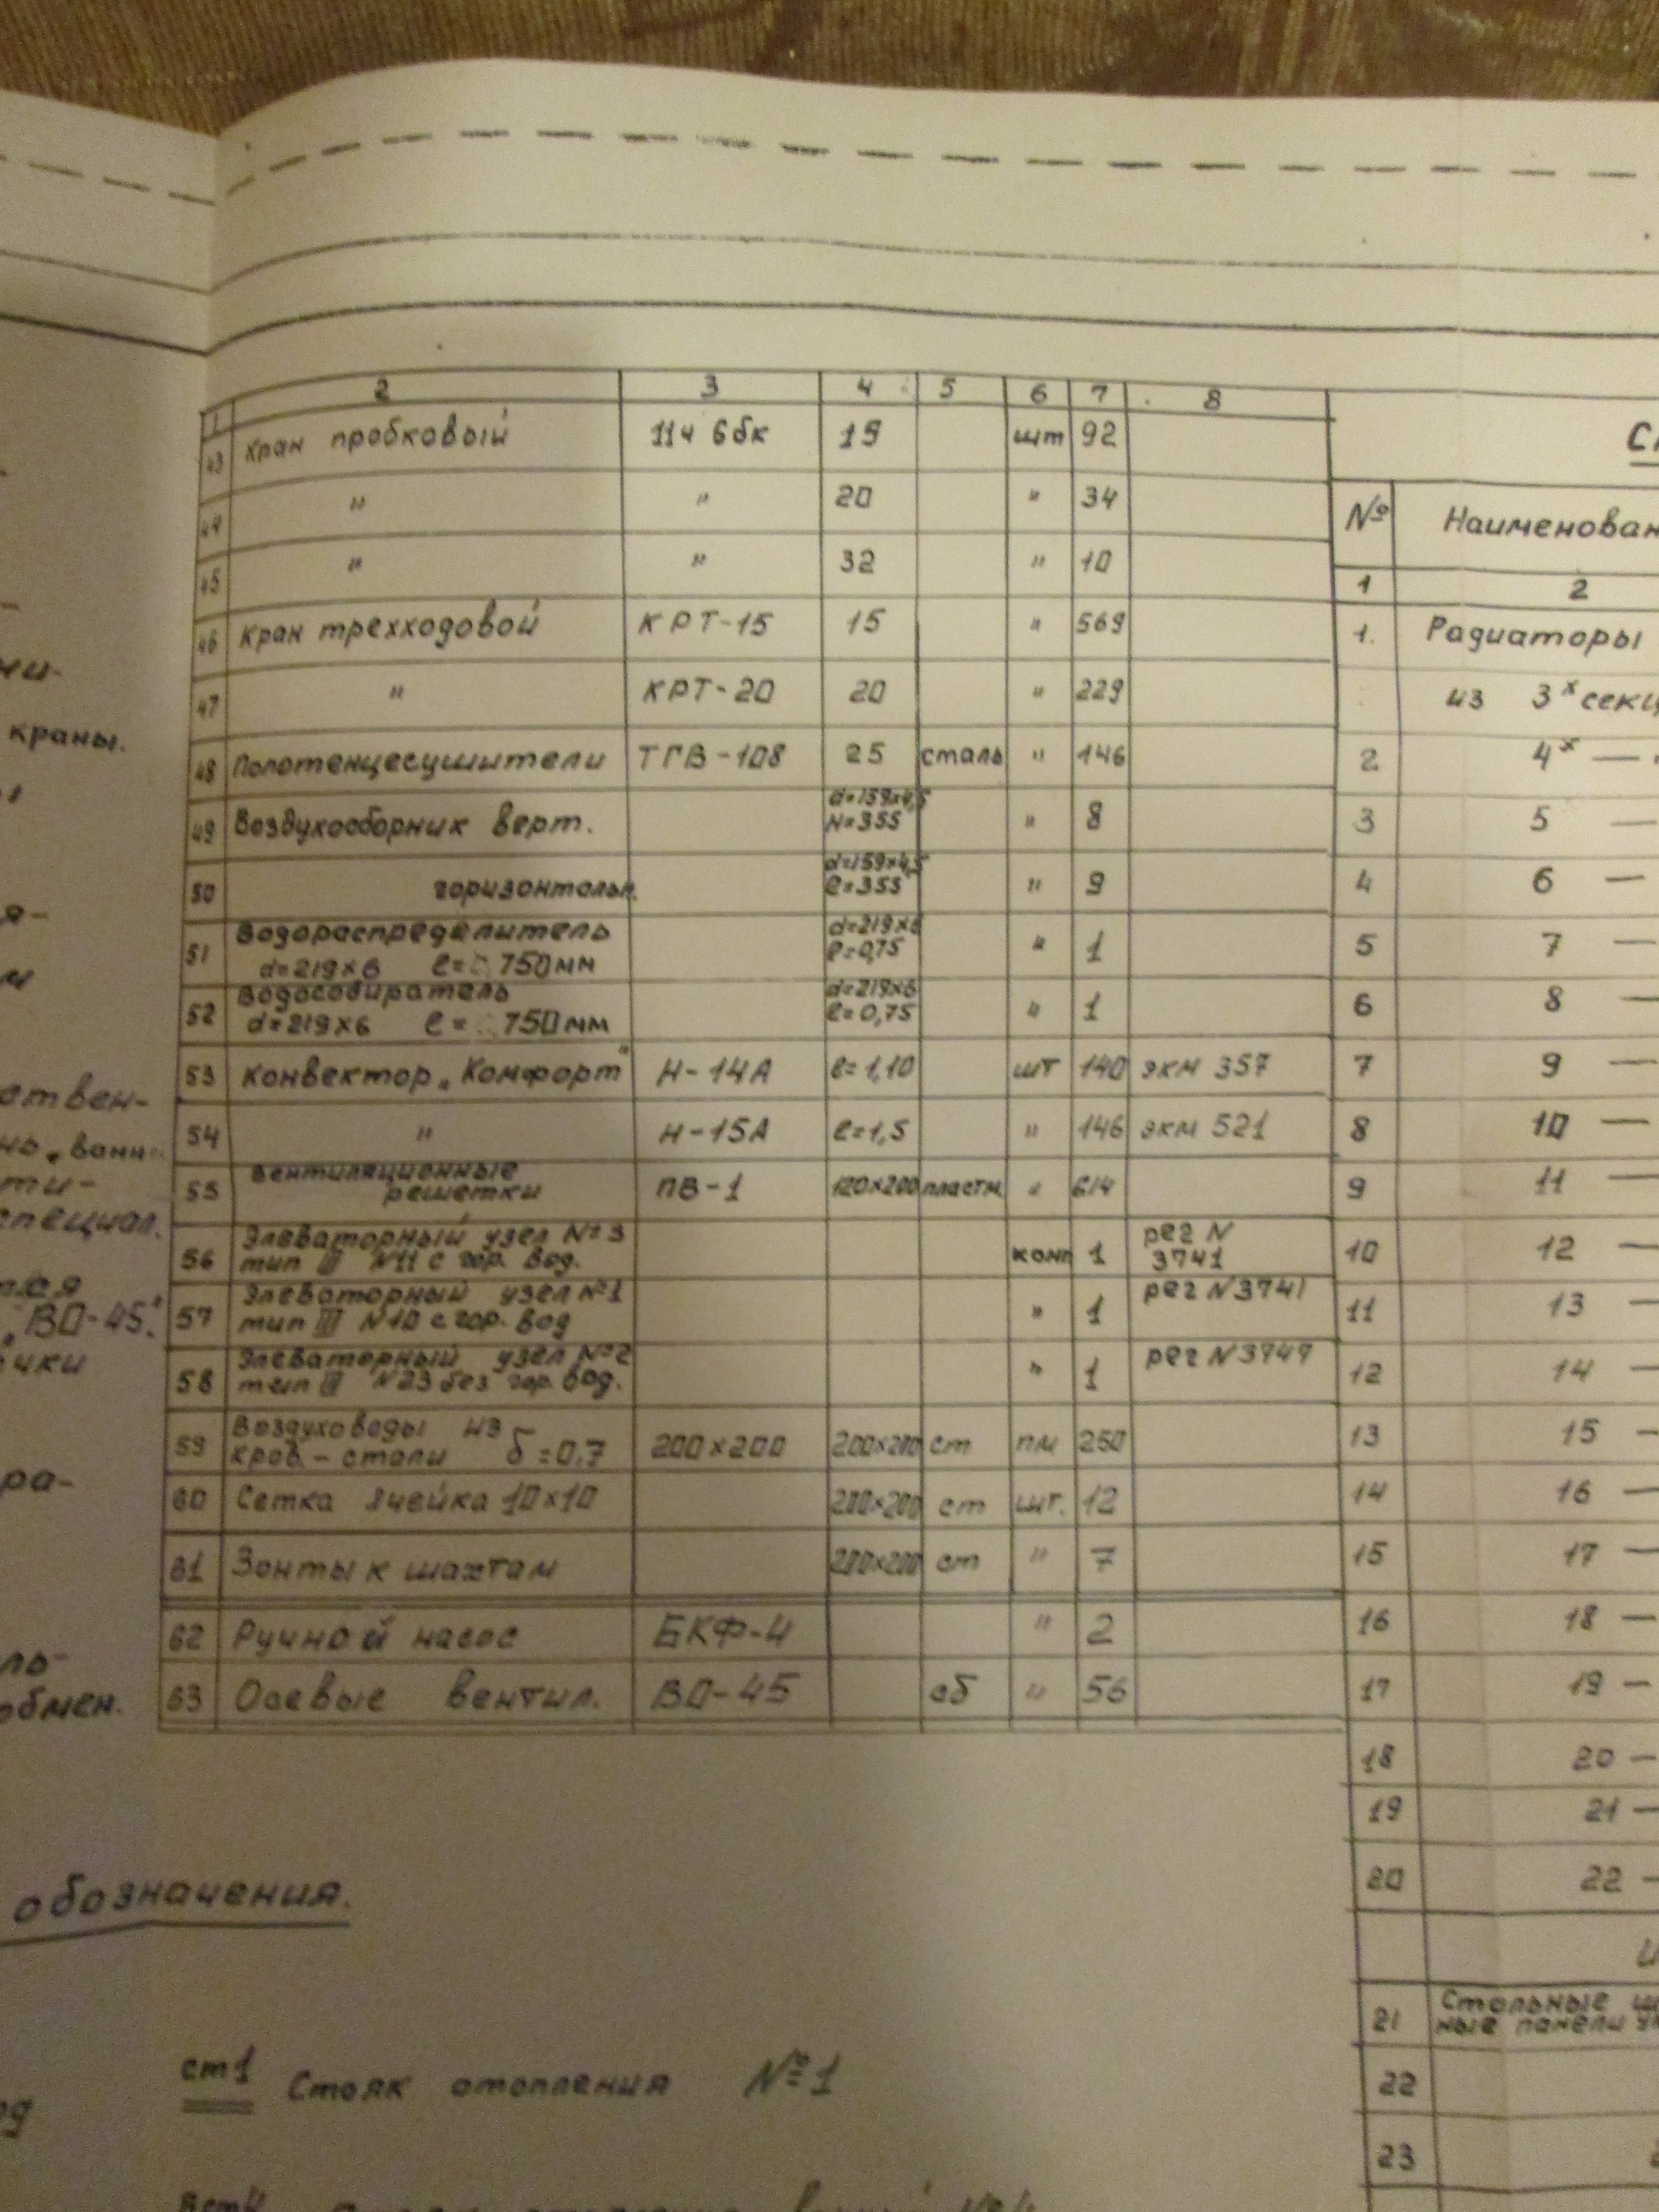 1 2 3 4 5 6 7 8
43 Кран пробковый 11ч 6бк 15 шт 92
44 " " 20 " 34
45 " " 32 " 10
46 Кран трехходовой КРТ-15 15 " 569
47 " КРТ-20 20 " 229
48 Полотенцесушители ТГВ-108 25 сталь " 146
49 Воздухосборник верт. d=159x4,5 H=355 " 8
50 горизонтальн. d=159x4,5 ℓ=355 " 9
51 Водораспределитель d=219x6 ℓ=0,75 " 1
d=219x6 ℓ= 750мм
52 Водособиратель d=219x6 ℓ=0,75 " 1
d=219x6 ℓ= 750мм
53 Конвектор „Комфорт" Н-14А ℓ=1,10 шт 140 экм 357
54 " Н-15А ℓ=1,5 " 146 экм 521
55 Вентиляционные решетки ПВ-1 120x200 пластм. " 614
56 Элеваторный узел №3 комп 1 рег N 3741
тип III N11 с гор. вод.
57 Элеваторный узел №1 " 1 рег N3741
тип III N10 с гор. вод
58 Элеваторный узел №2 " 1 рег N3749
тип II N23 без гор. вод.
59 Воздуховоды из 200x200 200x200 ст пм 250
кров.-стали δ=0,7
60 Сетка ячейка 10x10 200x200 ст шт. 12
61 Зонты к шахтам 200x200 ст " 7
62 Ручной насос БКФ-4 " 2
63 Осевые вентил. ВО-45 об " 56
№ Наименован
1 2
1. Радиаторы
из 3х секц
2 4х —
3 5 —
4 6 —
5 7 —
6 8 —
7 9 —
8 10 —
9 11 —
10 12 —
11 13 —
12 14 —
13 15 —
14 16 —
15 17 —
16 18 —
17 19 —
18 20 —
19 21 —
20 22 —
21 Стальные
ные панели
22
23
краны.
ствен-
ти-
специал.
„ВО-45".
чки
ра-
ль-
обмен.
обозначения.
ст1 Стояк отопления №1